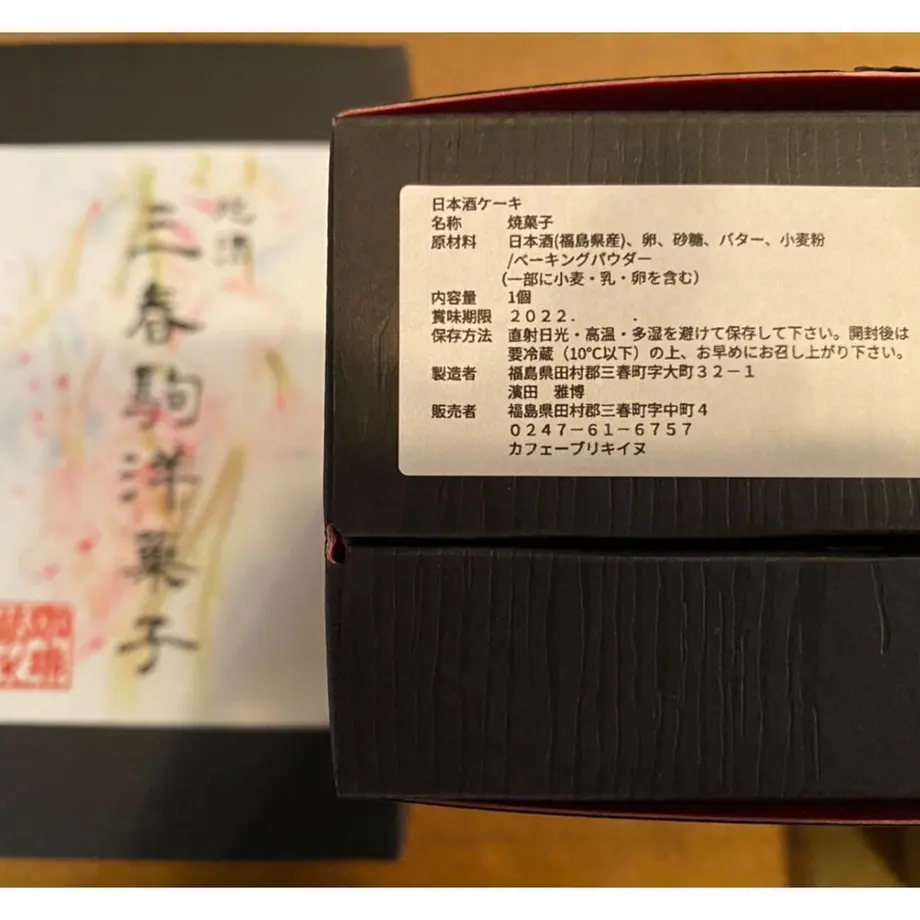 地酒
三春駒洋菓子
日本酒ケーキ
名称 焼菓子
原材料 日本酒(福島県産)、卵、砂糖、バター、小麦粉
/ベーキングパウダー
(一部に小麦・乳・卵を含む)
内容量 1個
賞味期限 2022. .
保存方法 直射日光・高温・多湿を避けて保存して下さい。開封後は
要冷蔵(10℃以下)の上、お早めにお召し上がり下さい。
製造者 福島県田村郡三春町字大町32-1
濱田 雅博
販売者 福島県田村郡三春町字中町4
0247-61-6757
カフェーブリキイヌ